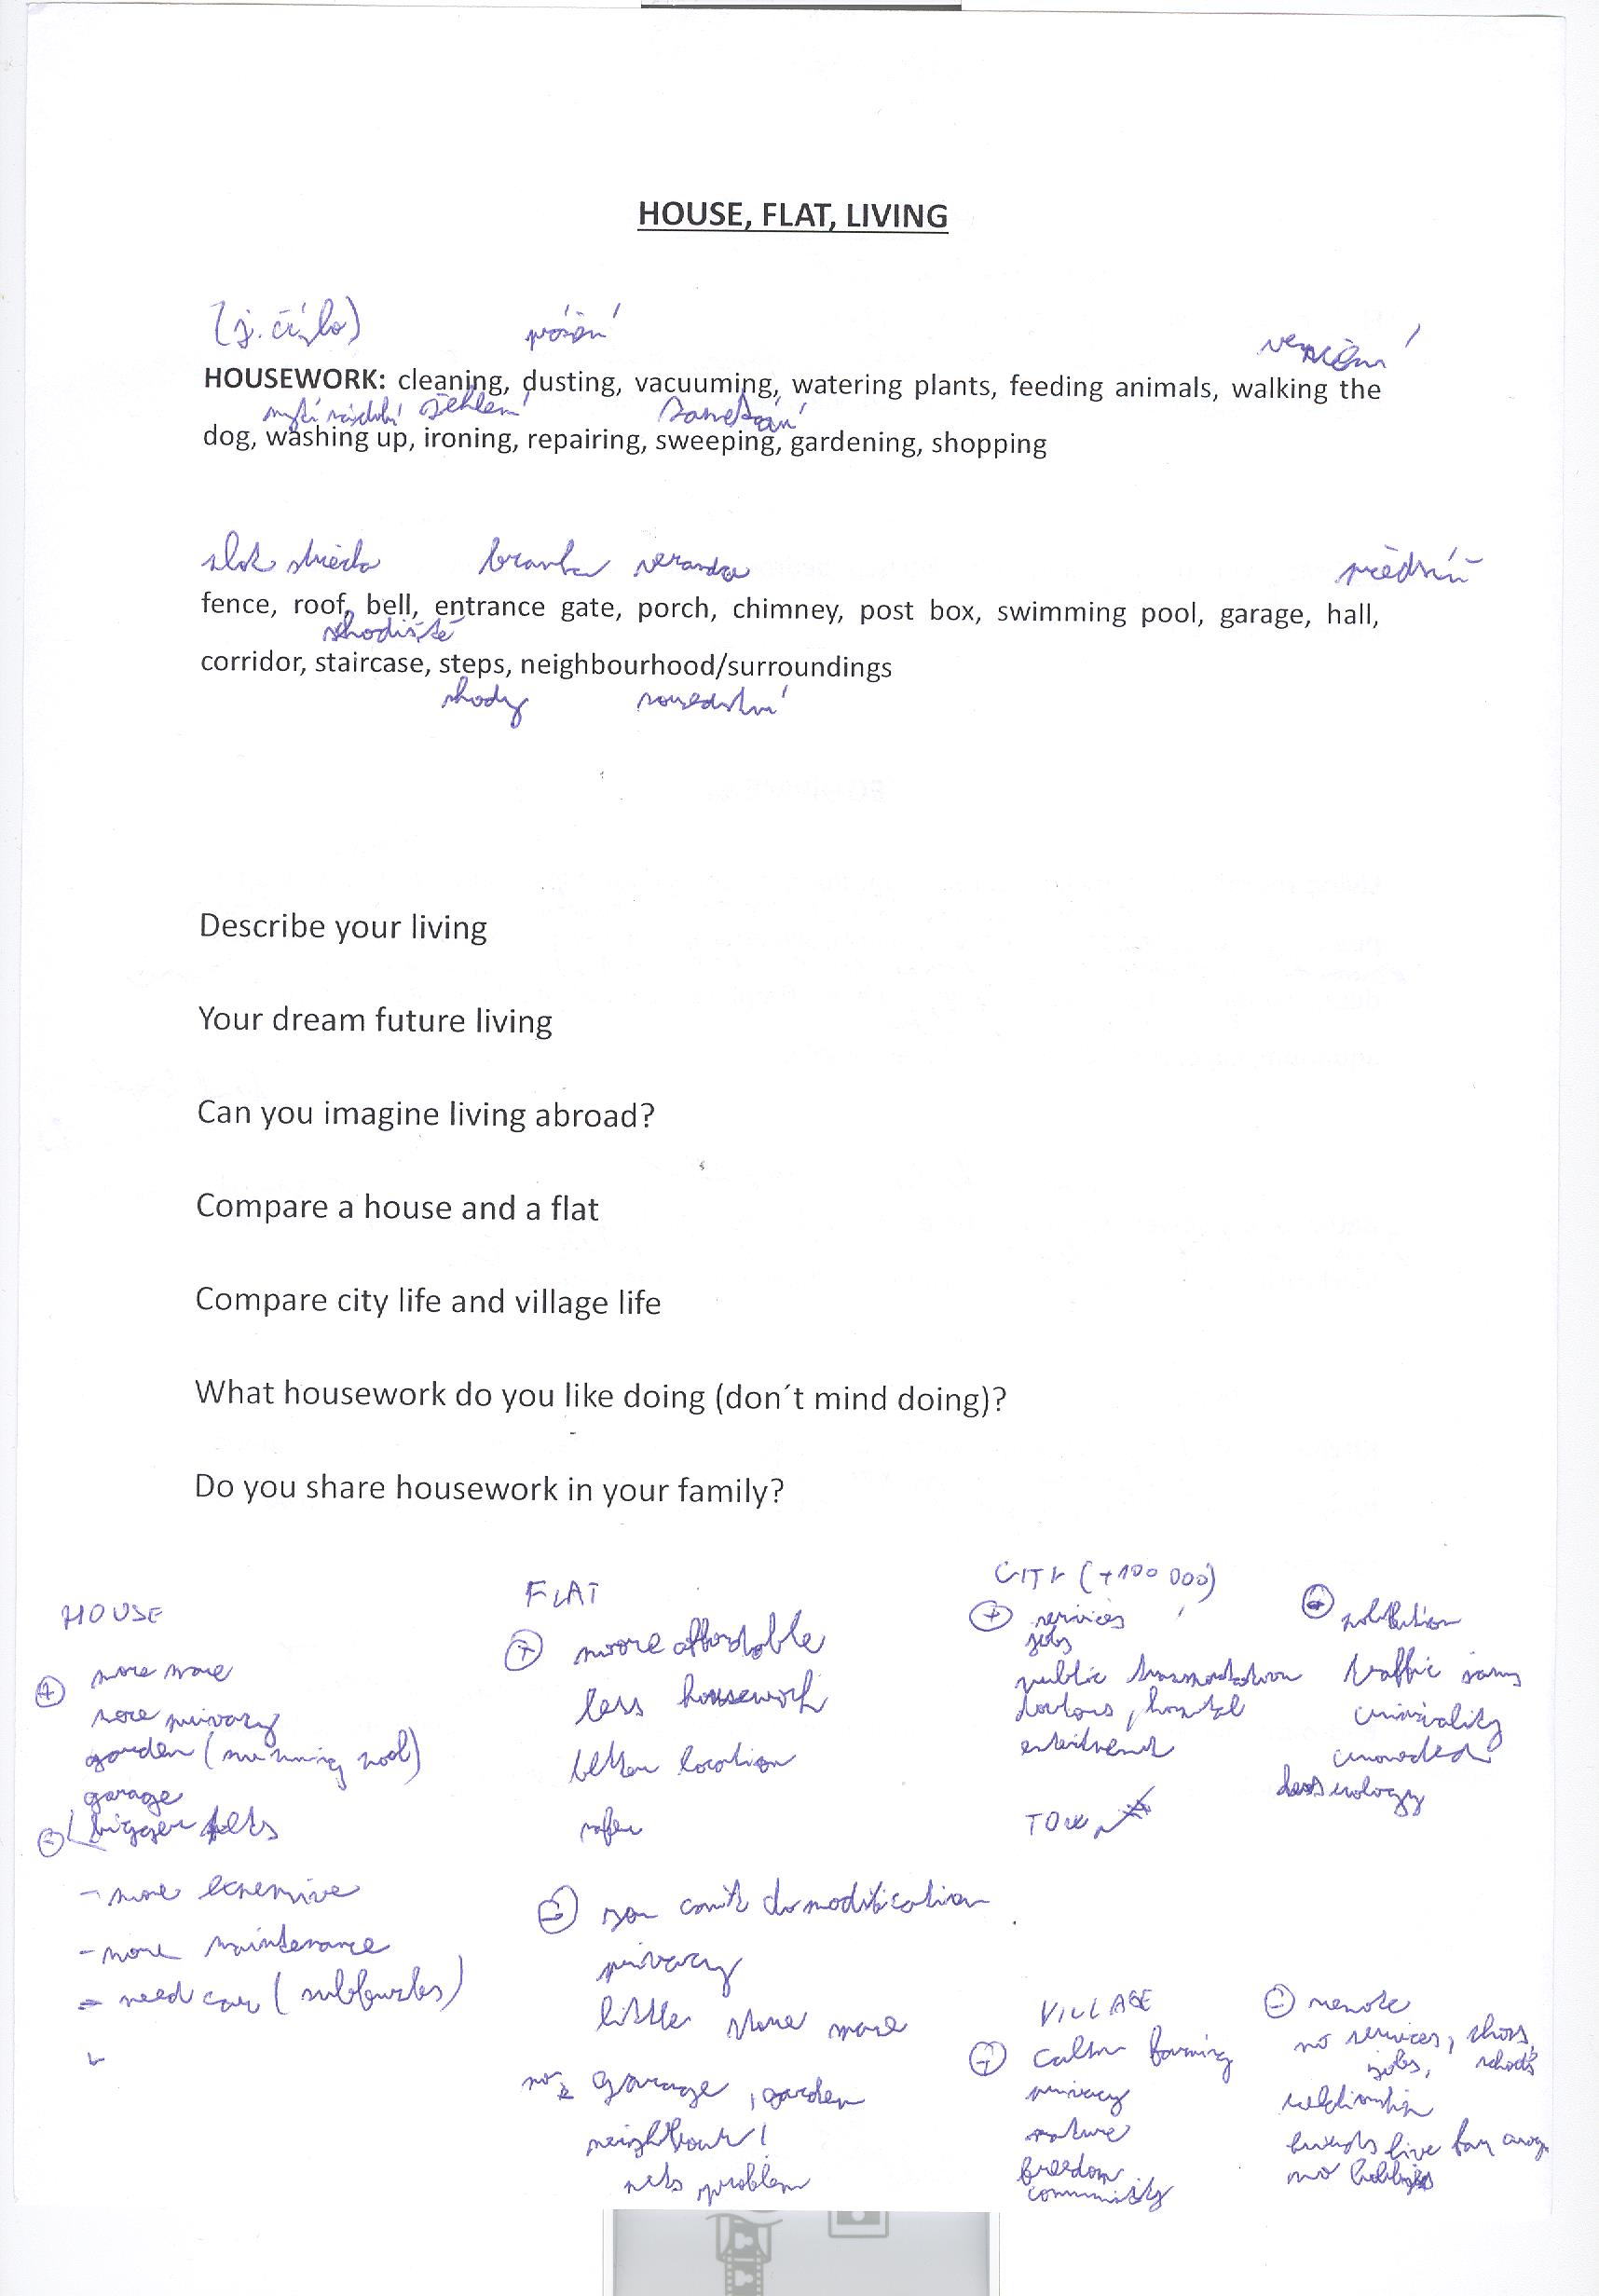 HOUSE, FLAT, LIVING
(j. číslo)
venčení
HOUSEWORK: cleaning, dusting, vacuuming, watering plants, feeding animals, walking the
mytí nádobí žehlení zametání
dog, washing up, ironing, repairing, sweeping, gardening, shopping
plot střecha branka veranda předsíň
fence, roof, bell, entrance gate, porch, chimney, post box, swimming pool, garage, hall,
schodiště
corridor, staircase, steps, neighbourhood/surroundings
schody sousedství
Describe your living
Your dream future living
Can you imagine living abroad?
Compare a house and a flat
Compare city life and village life
What housework do you like doing (don´t mind doing)?
Do you share housework in your family?
HOUSE
+ more
more privacy
garden (swimming pool)
garage
bigger pets
-
- more expensive
- more maintenance
- need car
FLAT
+ more affordable
less housework
better location
safer
- you can't do modification
privacy
little
no garage, garden
neighbour!
pets problem
CITY (+100 000)
+ services
jobs
public transportation
doctors, hospital
TOWN
- pollution
traffic jams
criminality
crowded
VILLAGE
+ calm farming
privacy
nature
freedom
community
- remote
no services, shops,
jobs, schools
relationship
friends live far away
no hobbies